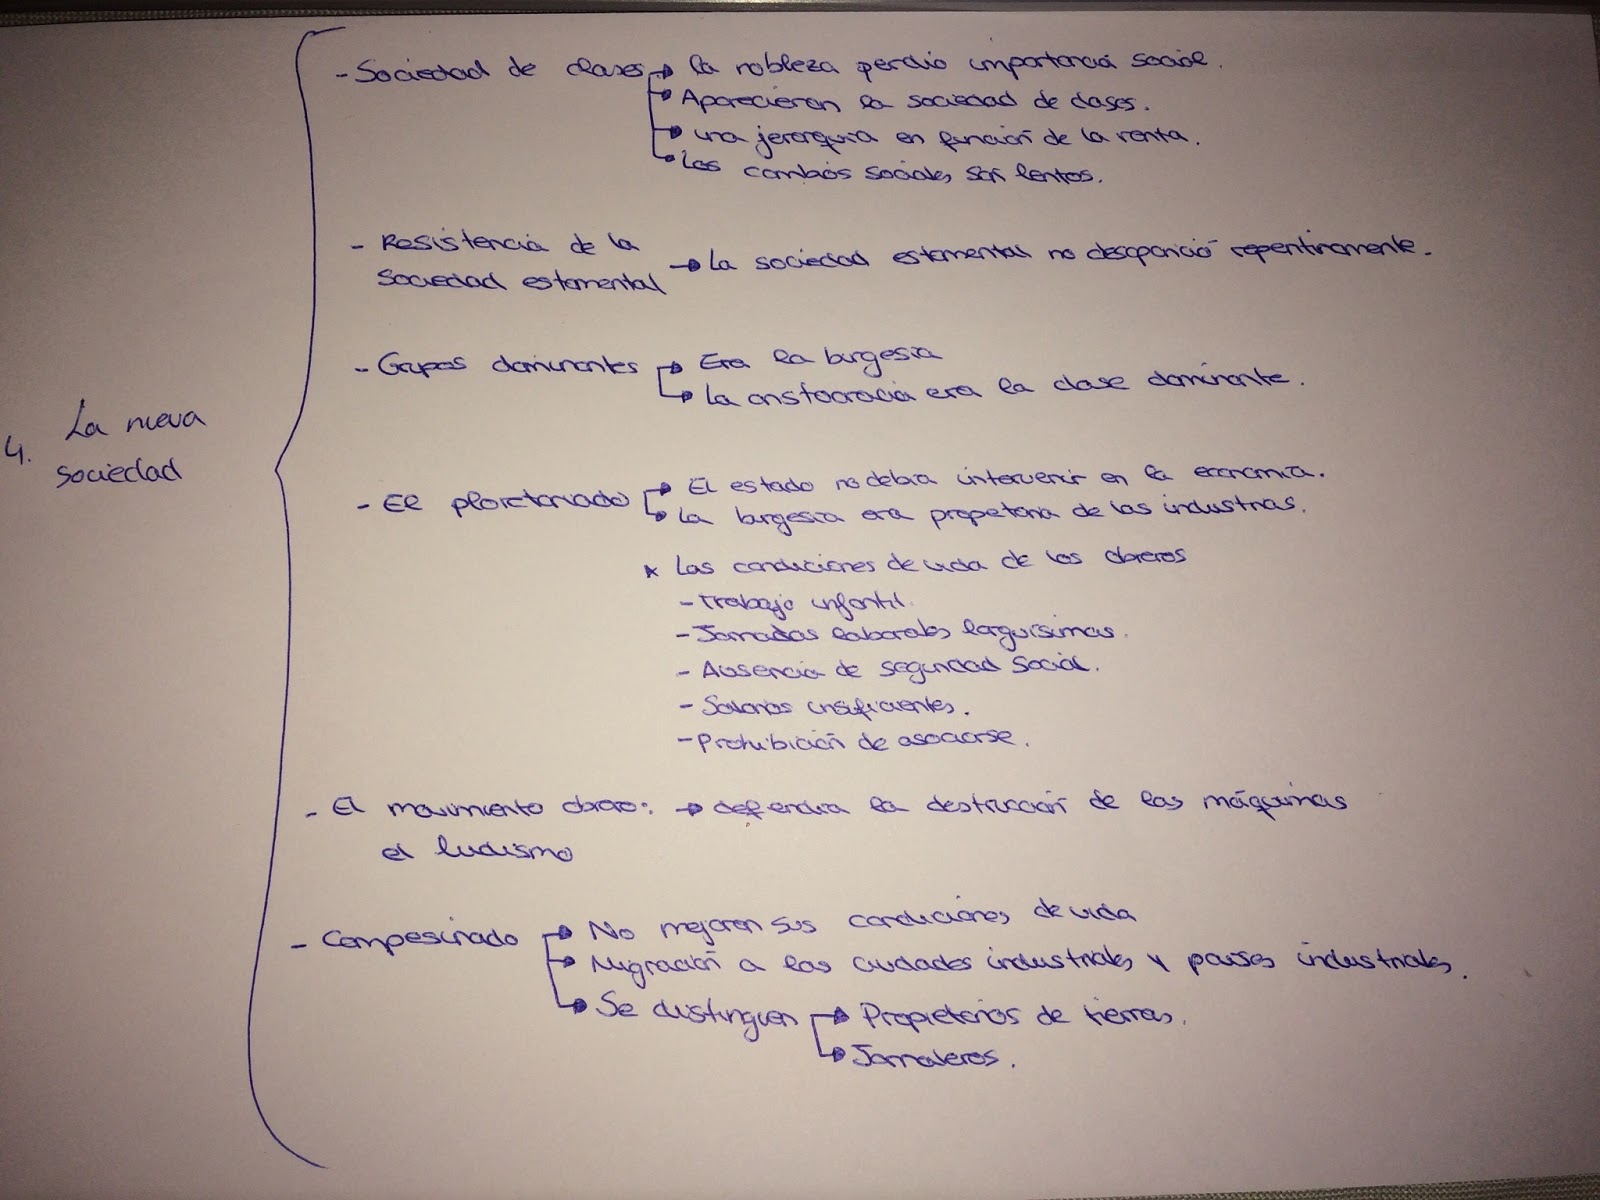 4. La nueva
sociedad
- Sociedad de clases → la nobleza perdio importancia social.
→ Aparecieron la sociedad de clases.
→ una jerarquia en función de la renta.
→ Los cambios sociales son lentos.
- Resistencia de la
sociedad estamental → La sociedad estamental no desapareció repentinamente.
- Grupos dominantes → Era la burgesia
→ La aristocracia era la clase dominante.
- El ploretariado → El estado no debia intervenir en la economia.
→ La burgesia era propetaria de las industrias.
* Las condiciones de vida de los obreros
- Trabajo infantil.
- Jornadas laborales larguisimas.
- Ausencia de seguridad social.
- Salarios insuficientes.
- Prohibición de asociarse.
- El movimiento obrero: → defendia la destrucción de las máquinas
el ludismo
- Campesinado → No mejoran sus condiciones de vida
→ Migración a las ciudades industriales y paises industriales.
→ Se distinguen → Propietarios de tierras.
→ Jornaleros.